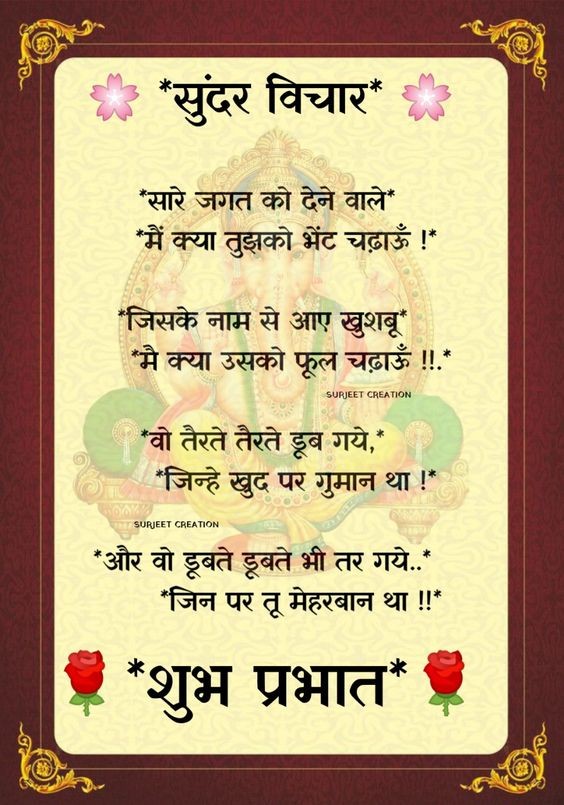 *सुंदर विचार*
*सारे जगत को देने वाले*
*मैं क्या तुझको भेंट चढ़ाऊँ !*
*जिसके नाम से आए खुशबू*
*मै क्या उसको फूल चढ़ाऊँ !!.*
SURJEET CREATION
*वो तैरते तैरते डूब गये,*
*जिन्हे खुद पर गुमान था !*
SURJEET CREATION
*और वो डूबते डूबते भी तर गये..*
*जिन पर तू मेहरबान था !!*
*शुभ प्रभात*